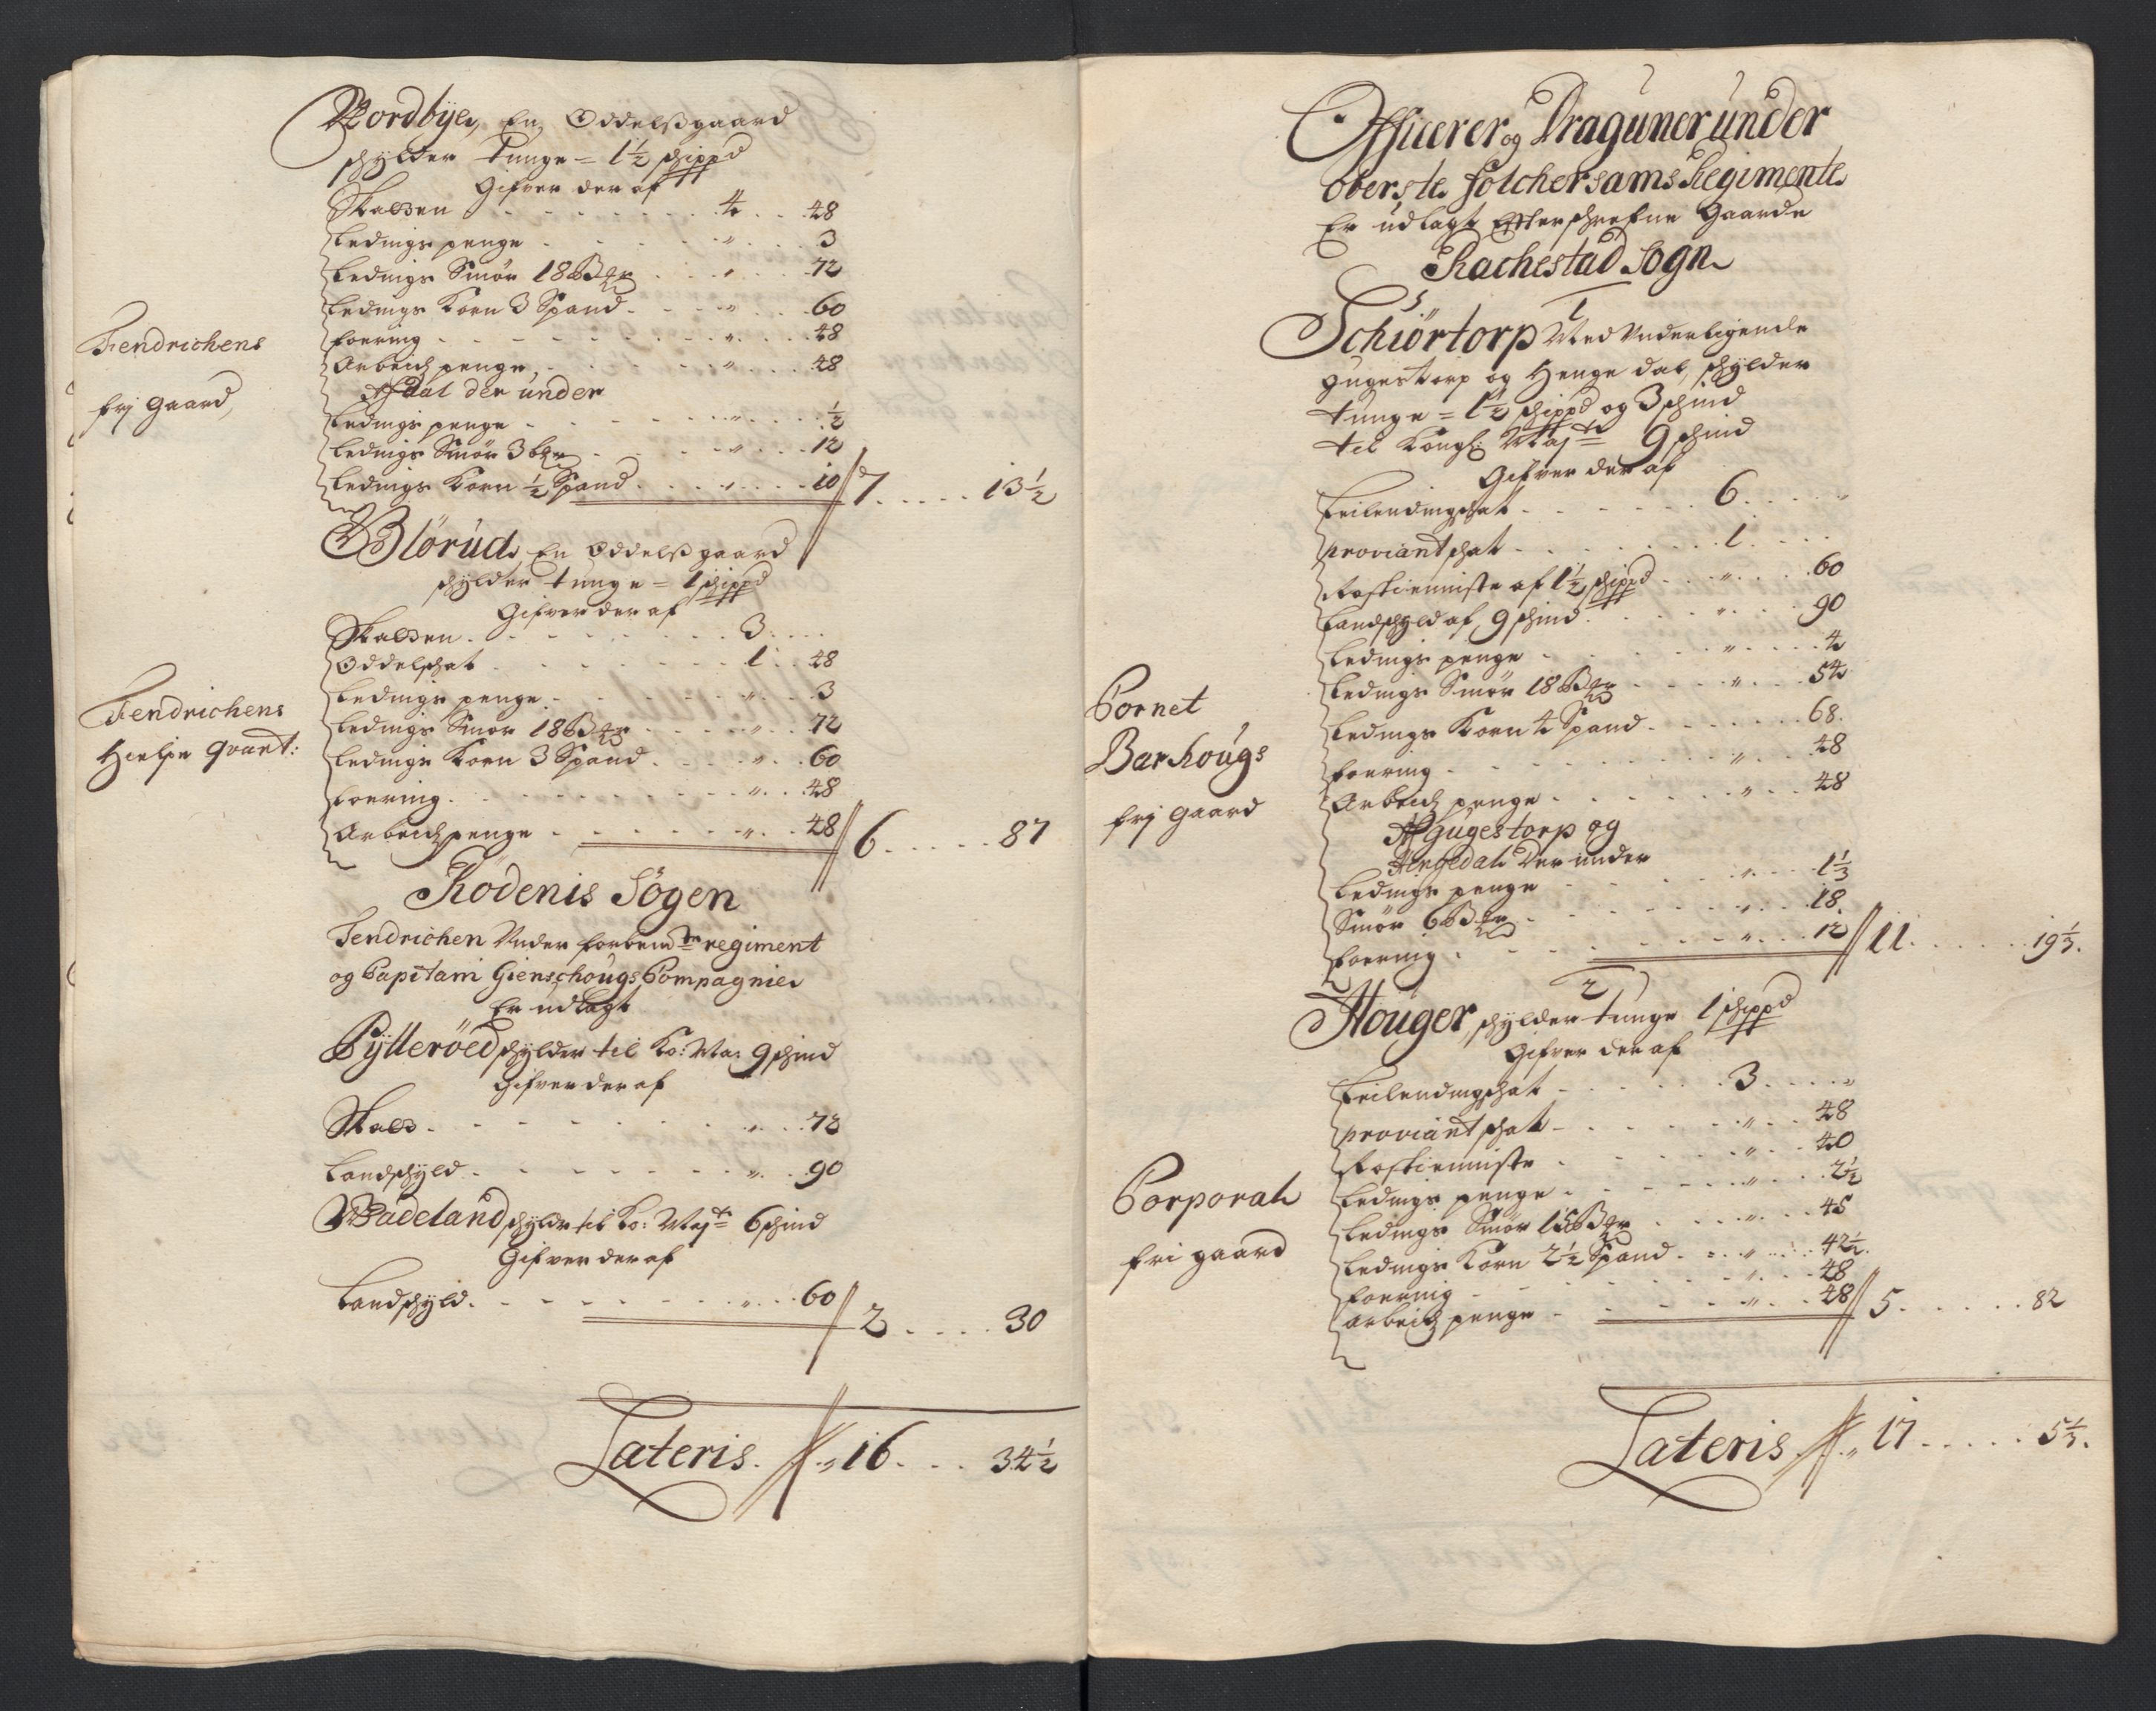 Nordbye, En Oddelsgaard
schylder tunge = 1½ schippd
Gifver der af
Skatten . . . 4 . . 48
Ledings penge . . . " . . 3
Ledings Smör 18 Bgr . . . " . . 72
Ledings Korn 3 Spand . . . " . . 60
Foering . . . " . . 48
Arbeids penge . . . " . . 48
Fendrichens
frj gaard,
Af Dal der under
Ledings penge . . . " . . ½
Ledings Smör 3 bgr . . . " . . 12
Ledings Korn ½ Spand . . . " . . 10 // 7 . . . . 13½
Blörud, En Oddelsgaard
schylder tunge = 1 schippd
Gifver der af
Skatten . . . 3 . .
Oddelschat . . . 1 . . 48
Ledings penge . . . " . . 3
Ledings Smör 18 Bgr . . . " . . 72
Ledings Korn 3 Spand . . . " . . 60
Foering . . . " . . 48
Arbeids penge . . . " . . 48 // 6 . . . . 87
Fendrichens
Hielpe qvart:
Rödenis Sogen
Fendrichen Under forbemte regiment
og Capitain Gienschougs Compagnie
Er udlagt
Bylleröed schylder til Ko: Ma: 9 schind
Gifver der af
Skatt . . . " . . 72
Landschyld . . . " . . 90
Wadeland schylder til Ko: Majt 6 schind
Gifver der af
Landschyld . . . " . . 60 // 2 . . . . 30
Lateris . // " 16 . . . 34½
Officerer og Draguner under
Oberste Folchersams Regimente
Er udlagt Efterschrefne Gaarde
Rachestad Sogn
1
Schiörtorp Med Underligende
Hugestorp og Henge dal, schylder
tunge = 1½ schippd og 3 schind
til Kongl: Majt 9 schind
Gifver der af
Leilendingschat . . . 6 . . "
Proviantschat . . . 1 . .
Rostieniste af 1½ schippd . . . " . . 60
Landschyld af 9 schind . . . " . . 90
Ledings penge . . . " . . 4
Ledings Smör 18 Bgr . . . " . . 54
Ledings Korn 4 Spand . . . 68
Foering . . . " . . 48
Arbeids penge . . . " . . 48
Cornet
Barhougs
frj gaard
Af Hugestorp og
Hengedal Der under
Ledings penge . . . " . . 1⅓
Smör 6 Bgr . . . " . . 18
Foering . . . " . . 12 // 11 . . . . 19⅓
2
Houger, schylder tunge 1 schippd
Gifver der af
Leilendingschat . . . 3 . . "
Proviantschat . . . " . . 48
Rostieniste . . . " . . 40
Ledings penge . . . " . . 2½
Ledings Smör 15 Bgr . . . " . . 45
Ledings Korn 2½ Spand . . . " . . 42½
Foering . . . " . . 48
Arbeids penge . . . " . . 48 // 5 . . . . 82
Corporals
fri gaard
Lateris // " 17 . . . . 5⅓